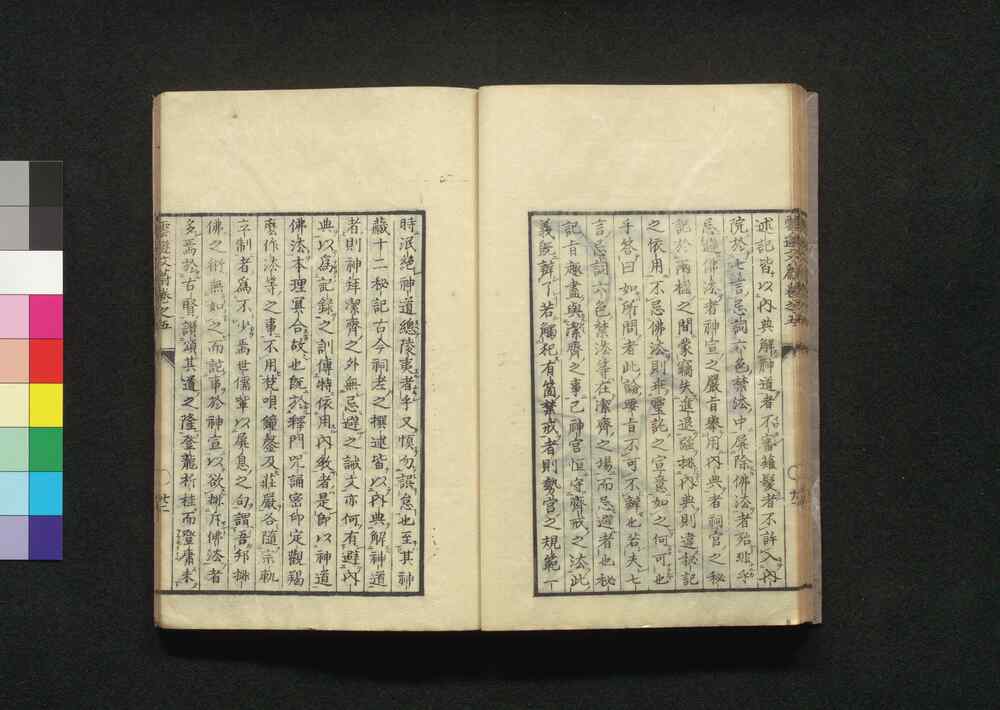 述記皆以內典解神道者不審鑵髮者不許入內
院於七言忌詞六色禁法中屏除佛法者殆非乎
忌避佛法者神宣之嚴旨舉用內典者祠官之秘
記於兩楹之間蒙竊失進退強排內典則違秘記
之依用不忌佛法則非靈託之宣意如之何可也
乎答曰如所問者此論要旨不可不辭也若夫七
言忌詞六色禁法等在潔齊之場而忌避者也秘
記旨趣盡與潔齊之事已神宮恒守齊戒之法此
義既辭了若觸犯有箇禁戒者則勢宮之規範一
時泯絕神道總陵夷者乎又慎勿誤怠也至其神
藏十二秘記古今祠老之撰述皆以內典解神道
者則神拜潔齊之外無忌避之誡文亦何有避內
典以為記錄之訓傳特依用內教者是即以神道
佛法本理冥合故也既於釋門咒誦密印定觀
麼作法等之事不用梵唄鐘磬及莊嚴各隨宗軌
卒制者為不少焉世儒輩以屏息之句謂吾邦排
佛之術無如之而託事於神宣以欲排斥佛法者
多焉於古賢讚頌其道之隆登龍折桂而登庸未
之五